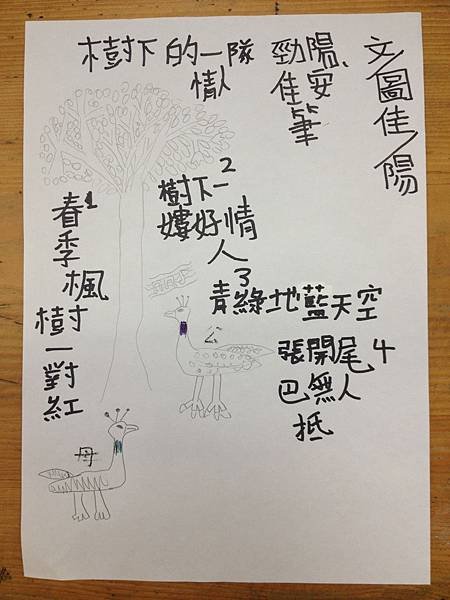 樹下的一隊
情人
勁陽、
佳安
筆
文/圖佳/陽
1
春季楓
樹一對紅
2
樹下一
好情
人
3
青綠地藍天空
張開尾4
巴無人
抵
公
母